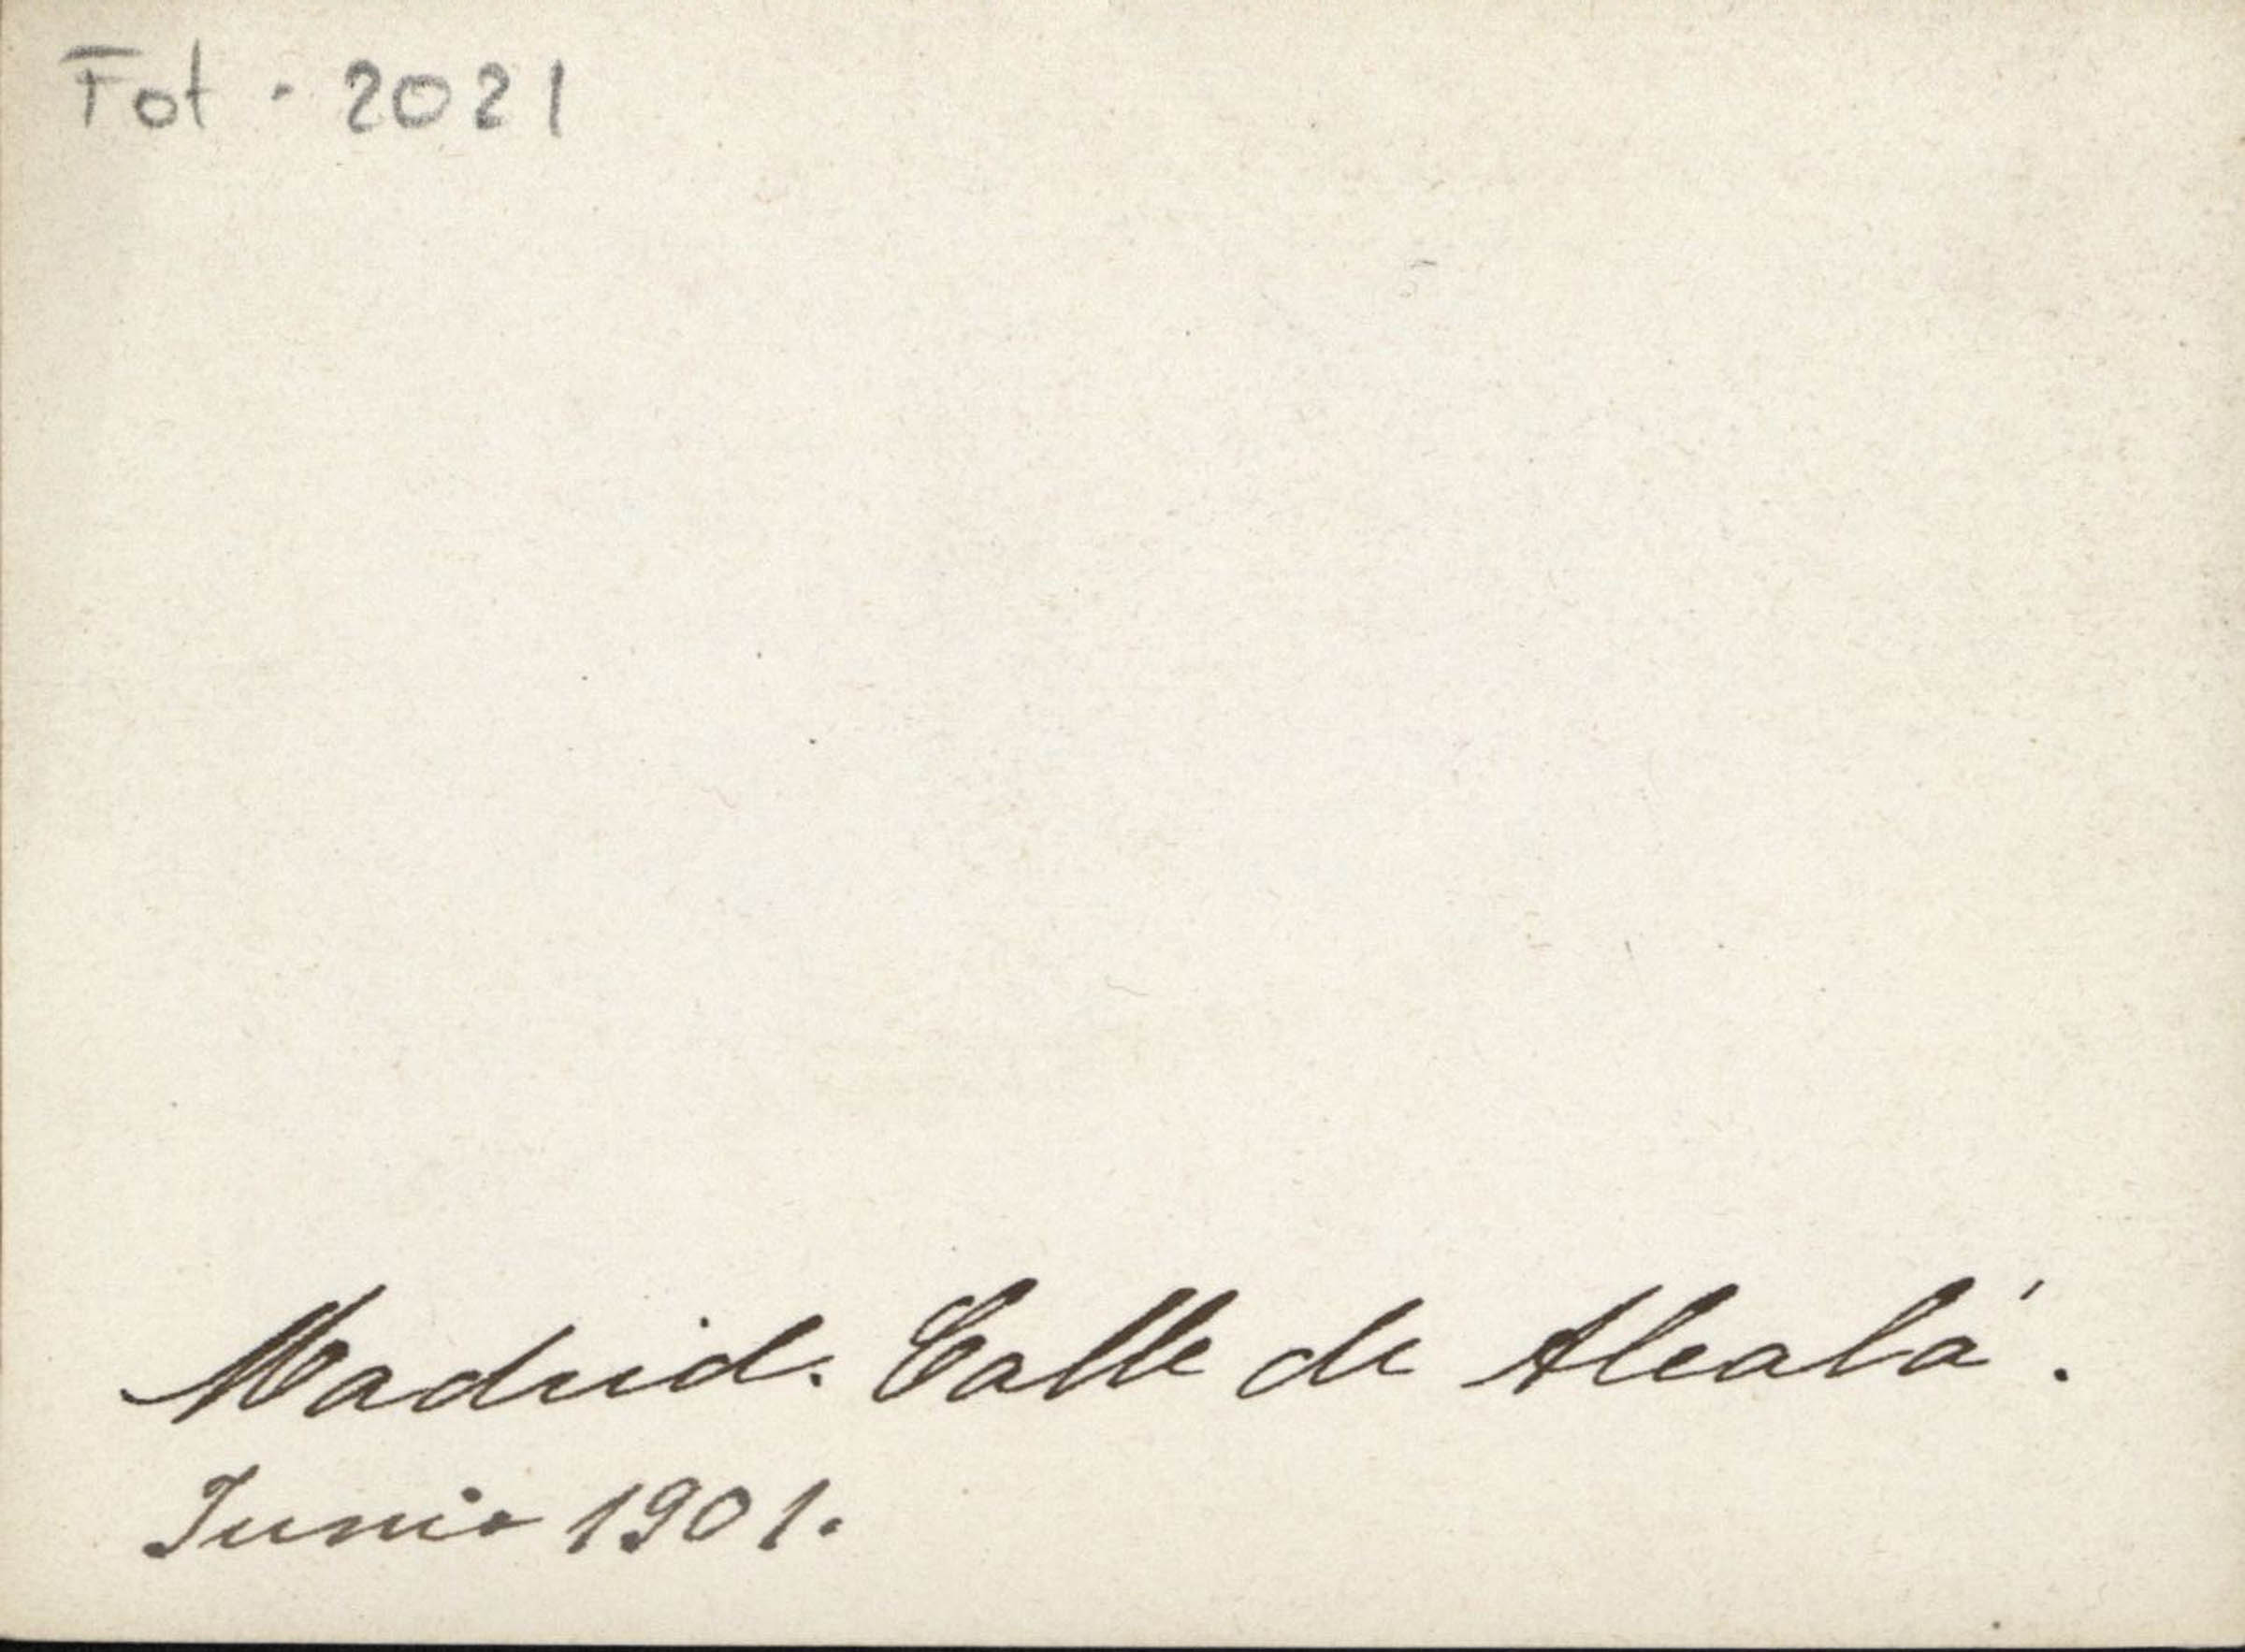 Fot. 2021
Madrid. Calle de Alcalá.
Junio 1901.